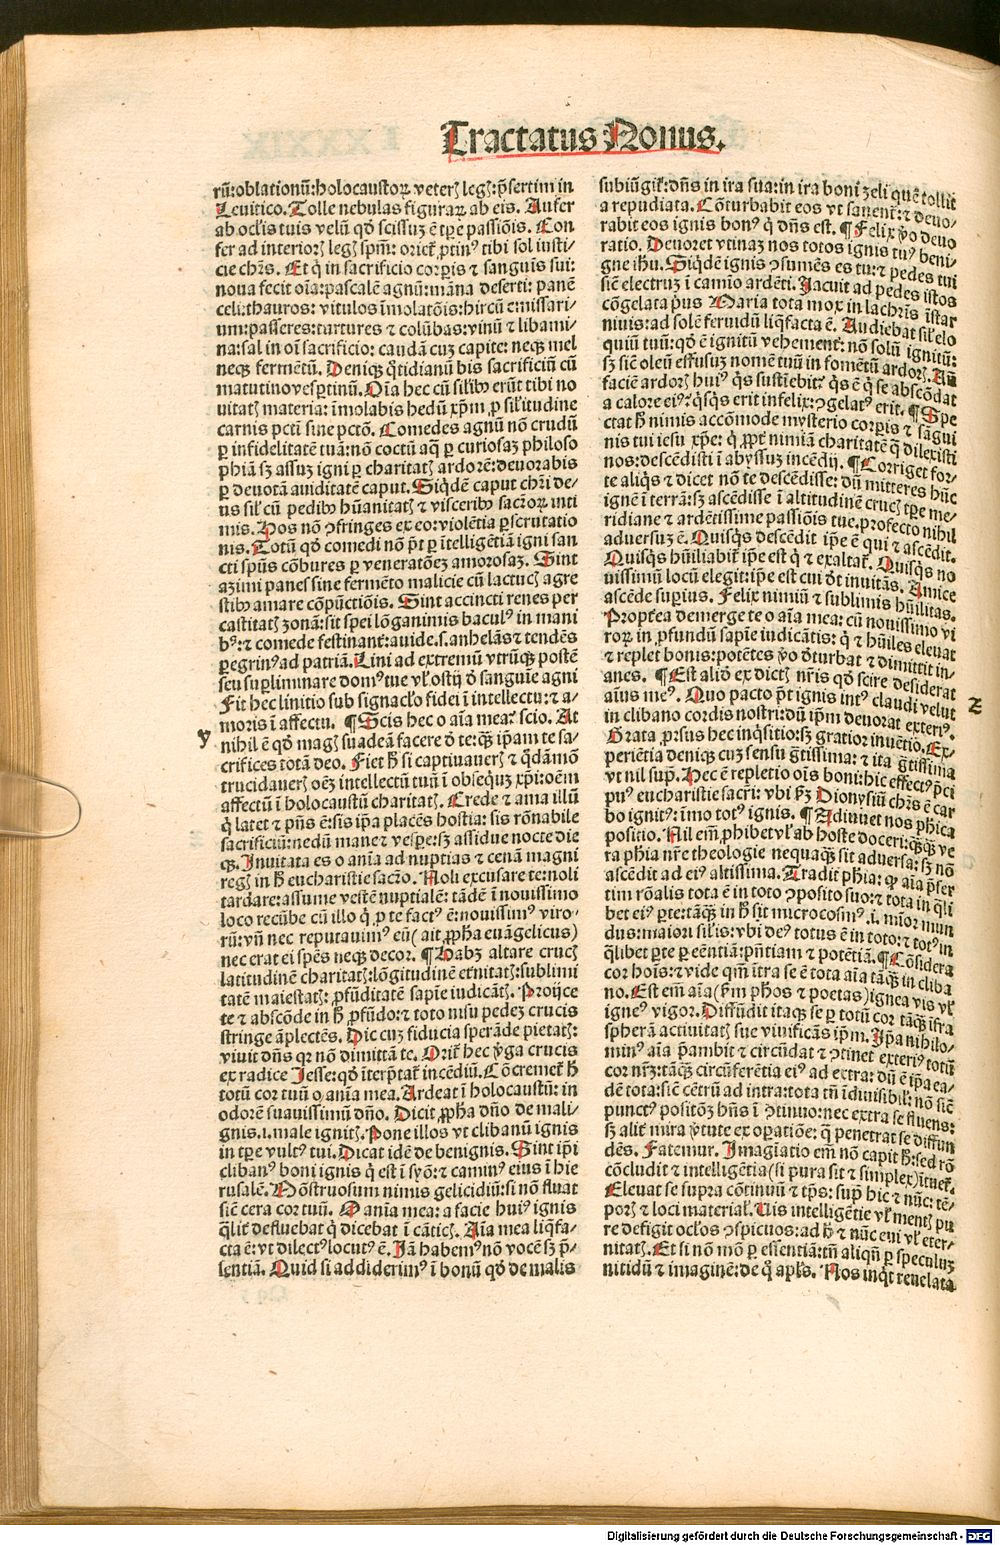 Tractatus Nonus.
rũ:oblationũ:holocaustoꝝ veterꝭ legꝭ:p̃sertim in
Leuitico. Tolle nebulas figuraꝝ ab eis. Aufer
ab ocl̓is tuis velũ qđ scissuꝫ ẽ tꝑe passiõis. Con
fer ad interiorꝭ legꝭ spm̃: orieť ꝓtinꝰ tibi sol iusti-
cie chr̃s. Et q̇ in sacrificio corꝑis ⁊ sanguis sui:
noua fecit oĩa:pascalẽ agnũ:mãna deserti: panẽ
celi:thauros: vitulos ĩmolatõis:hircũ emissari-
um:passeres:turtures ⁊ colũbas:vinũ ⁊ libami-
na:sal in oĩ sacrificio: caudã cuꝫ capite: neqꝫ mel
necꝫ fermẽtũ. Deniqꝫ q̇tidianũ bis sacrificiũ cũ
matutino vesꝑtinũ. Oĩa hec cũ sil̓ibꝰ erũt tibi no
uitatꝭ materia: ĩmolabis hedũ xp̃m ꝓ sil̓itudine
carnis pctĩ sine pctõ. Comedes agnũ nõ crudũ
ꝑ infidelitatẽ tuã:nõ coctũ aq̃ ꝑ curiosaꝫ philoso
phiã sꝫ assuꝫ igni ꝑ charitatꝭ ardorẽ:deuorabis
ꝑ deuotã auiditatẽ caput. Siq̇dẽ caput chr̃i de-
us sil̓ cũ pedibꝰ hũanitatꝭ ⁊ visceribꝰ sacroꝝ inti
mis. Hos nõ ꝯfringes ex eo:violẽtia ꝑscrutatio
nis. Totũ qđ comedi nõ p̃t ꝑ ĩtelligẽtiã igni san
cti spũs cõbures ꝑ veneratõeꝫ amorosaꝫ. Sint
aꝫimi panes sine fermẽto malicie cũ lactucꝭ agre
stibꝰ amare cõpũctiõis. Sint accincti renes per
castitatꝭ ꝫonã:sit spei lõganimis baculꝰ in mani
bꝰ:⁊ comede festinanť:auide.s.anhelãs⁊ tendẽs
ꝑegrinꝰ ad patriã. Lini ad extremũ vtrũqꝫ postẽ
seu suꝑliminare domꝰ tue vl̓ ostij đ sanguie agni
Fit hec linitio sub signacl̓o fidei ĩ intellectu:⁊ a-
moris ĩ affectu. ¶ Scis hec o aĩa mea? scio. At
y
nihil ẽ qđ magꝭ suadeã facere đ te:q̃ꝫ ip̃am te sa-
crifices totã deo. Fiet h̃ si captiuauerꝭ ⁊ q̇dãmõ
trucidauerꝭ oẽꝫ intellectũ tuũ ĩ obsequꝫ xp̃i:oẽm
affectũ ĩ holocaustũ charitatꝭ. Crede ⁊ ama illũ
q̇ latet ⁊ pñs ẽ:sis ip̃a placẽs hostia: sis rõnabile
sacrificiũ:nedũ mane⁊ vespe:sꝫ assidue nocte die
qꝫ. Inuitata es o anĩa ad nuptias ⁊ cenã magni
regꝭ in h̃ eucharistie sacr̃o. Noli excusare te:noli
tardare:assume vestẽ nuptialẽ: tãdẽ ĩ nouissimo
loco recũbe cũ illo q̇ ꝓ te factꝰ ẽ:nouissimꝰ viro-
rũ:vñ nec reputauimꝰ eũ( ait ꝓp̃ha euãgelicus)
nec erat ei spẽs neqꝫ decor. ¶ Habꝫ altare crucꝭ
latitudinẽ charitatꝭ:lõgitudinẽ et̃nitatꝭ:sublimi
tatẽ maiestatꝭ: ꝓfũditatẽ sapĩe iudicãtꝭ. Proijce
te ⁊ abscõde in h̃ ꝓfũdo:⁊ toto nisu pedeꝫ crucis
stringe ãplectẽs. Dic cuꝫ fiducia sperãde pietatꝭ:
viuit dñs qꝛ nõ dimittã te. Oriť hec ꝟga crucis
ex radice Iesse:qđ ĩterp̃tať incẽdiũ. Cõcremeť h̃
totũ cor tuũ o anĩa mea. Ardeat ĩ holocaustũ: in
odorẽ suauissimũ dño. Dicit ꝓp̃ha dño de mali-
gnis.i.male ignitꝭ. Pone illos vt clibanũ ignis
in tꝑe vultꝰ tui. Dicat idẽ de benignis. Sint ip̃i
clibanꝰ boni ignis q̇ est ĩ syõ:⁊ caminꝰ eius ĩ hie
rusalẽ. Mõstruosum nimis gelicidiũ:si nõ fluat
siẽ cera cor tuũ. O anĩa mea: a facie huiꝰ ignis
q̃lit̃ defluebat q̇ dicebat ĩ cãticꝭ. Aĩa mea liq̃fa-
cta ẽ:vt dilectꝰ locutꝰ ẽ. Iã habemꝰ nõ vocẽ sꝫ p̃-
sentiã. Quid si addiderimꝰ ĩ bonũ qđ de malis
subiũgiť:dñs in ira sua:in ira boni ꝫeli quẽ tollit
a repudiata. Cõturbabit eos vt sanenť:⁊ deuo-
rabit eos ignis bonꝰ q̇ dñs est. ¶ Felix ꝟo deuo
ratio. Deuoret vtinaꝫ nos totos ignis tuꝰ beni-
gne ihũ. Siq̇dẽ ignis ꝯsumẽs es tu:⁊ pedes tui
siẽ electruꝫ ĩ camĩo ardẽti. Iacuit ad pedes istos
cõgelata p̃us Maria tota mox in lachrĩs ĩstar
niuis:ad solẽ feruidũ liq̃facta ẽ. Audiebat sil̓ elo
quiũ tuũ:qđ ẽ ignitũ vehemenť: nõ solũ ignitũ:
sꝫ siẽ oleũ effusuꝫ nomẽ tuũ in fomẽtũ ardorꝭ. An
faciẽ ardorꝭ huiꝰ q̇s sustĩebit? q̇s ẽ q̇ se abscõdat
a calore eiꝰ? q̇sq̇s erit infelix:ꝯgelatꝰ erit. ¶ Spe
ctat h̃ nimis accõmode mysterio corꝑis ⁊ sãgui
nis tui iesu xp̃e: q̇ ꝓpť nimiã charitatẽ q̃ dilexisti
nos:descẽdisti ĩ abyssuꝫ incẽdij. ¶ Corriget for-
te aliq̇s ⁊ dicet nõ te descẽdisse: dũ mitteres hũc
ignẽ ĩ terrã:sꝫ ascẽdisse ĩ altitudinẽ crucꝭ tꝑe me-
ridiane ⁊ ardẽtissime passiõis tue.profecto nihil
aduersuꝫ ẽ. Quisq̇s descẽdit ip̃e ẽ qui ⁊ ascẽdit.
Quisq̇s hũiliabiť ip̃e est q̇ ⁊ exaltať. Quisq̇s no
uissimũ locũ elegit:ip̃e est cui đt inuitãs. Amice
ascẽde suꝑius. Felix nimiũ ⁊ sublimis hũilitas.
Propt̃ea demerge te o aĩa mea: cũ nouissimo vi
roꝝ in ꝓfundũ sapĩe iudicãtis: q̇ ⁊ hũiles eleuat
⁊ replet bonis:potẽtes ꝟo đturbat ⁊ dimittit in-
anes. ¶ Est aliđ ex dictꝭ nr̃is qđ scire desiderat
aĩus meꝰ. Quo pacto p̃t ignis intꝰ claudi velut
z
in clibano cordis nostri:dũ ip̃m deuorat exteriꝰ.
Grata ꝓrsus hec inq̇sitio:sꝫ gratior inuẽtio. Ex-
periẽtia deniqꝫ cuꝫ sensu g̃tissima: ⁊ ita g̃tissima
vt nil sup̃. Hec ẽ repletio oĩs boni:hic effectꝰ p̃ci
puꝰ eucharistie sacr̃i: vbi ẜꝫ Dionysiũ chr̃s ẽ car
bo ignitꝰ: ĩmo totꝰ ignis. ¶ Adiuuet nos ph̃ica
positio. Nil em̃ ꝓhibet vl̓ ab hoste doceri:q̃ꝫq̃ꝫ ve
ra ph̃ia nr̃e theologie nequaq̃ꝫ sit aduersa: sꝫ nõ
ascẽdit ad eiꝰ altissima. Tradit ph̃ia: ꝙ aĩa p̃ser
tim rõalis tota ẽ in toto ꝯposito suo:⁊ tota in q̃li
bet eiꝰ ꝑte:tãq̃ꝫ in h̃ sit microcosmꝰ.i. mĩor mun
dus:maiori sil̓is:vbi deꝰ totus ẽ in toto:⁊ totꝰ in
q̃libet ꝑte ꝑ eẽntiã:pñtiam ⁊ potẽtiã. ¶ Cõsidera
cor hoĩs:⁊ vide qm̃ ĩtra se ẽ tota aĩa tãq̃ꝫ in cliba
no. Est em̃ aĩa (ẜm ph̃os ⁊ poetas) ignea vis vl̓
igneꝰ vigor. Diffũdit itaqꝫ se ꝑ totũ cor tãq̃ꝫ ĩfra
spherã actiuitatꝭ sue viuificãs ip̃m. Ip̃a nihilo-
minꝰ aĩa p̃ambit ⁊ circũdat ⁊ ꝯtinet exteriꝰ totũ
cor nr̃ꝫ:tãq̃ꝫ circũferẽtia eiꝰ ad extra: dũ ẽ ip̃a ea-
dẽ tota:siẽ cẽtrũ ad intra:tota tñ ĩdiuisibil̓: nõ siẽ
punctꝰ positõꝫ hñs ĩ ꝯtinuo:nec extra se fluens:
sꝫ aliť mira ꝟtute ex oꝑatiõe: q̃ penetrat se diffun
dẽs. Fatemur. Imagĩatio em̃ nõ capit h̃:sed rõ
cõcludit ⁊ intelligẽtia( si pura sit ⁊ simplex)ĩtueť.
Eleuat se supra cõtinuũ ⁊ tp̃s: sup̃ hic ⁊ nũc: tẽ-
porꝭ ⁊ loci material̓. Uis intelligẽtie vl̓ mentꝭ pu
re defigit ocl̓os ꝯspicuos: ad h̃ ⁊ nũc eui vl̓ eter-
nitatꝭ. Et si nõ mõ ꝑ essentiã:tñ aliqñ ꝑ speculuꝫ
nitidũ ⁊ imaginẽ:de q̇ apl̓s. Nos inq̇t reuelata
Digitalisierung gefördert durch die Deutsche Forschungsgemeinschaft - DFG